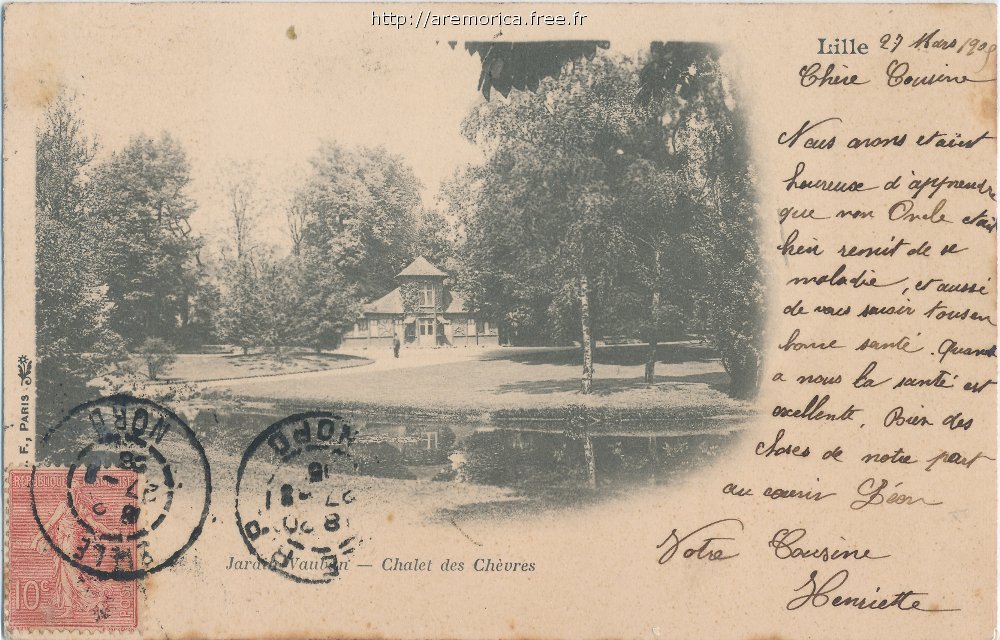 http://aremorica.free.fr
Lille 27 Mars 190
Chère Cousine
Nous avons etaint
heureuse d'apprendre
que mon Oncle etait
bien remit de sa
maladie, et aussi
de vous savoir tous en
bonne santé. Quand
a nous la santé est
excellente. Bien des
choses de notre part
au cousin Léon
Votre Cousine
Henriette
F., PARIS
NORD
LILLE
NORD
10c
POSTES
Jardin Vauban — Chalet des Chèvres